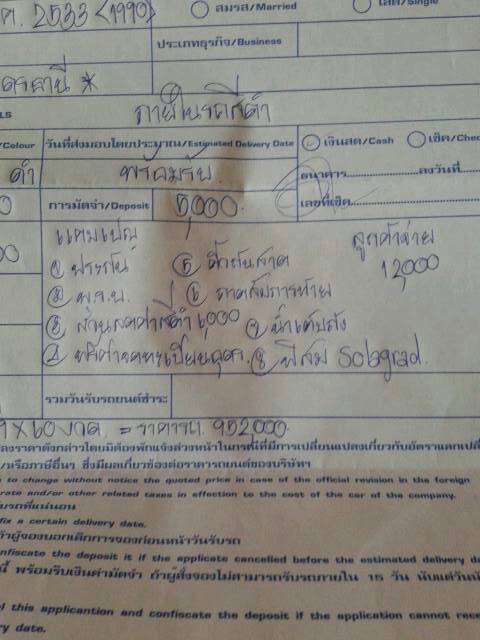 ศ. 2533 (1990) สมรส/Married โสด/Single
ประเภทธุรกิจ/Business
*
ภายในรถสีดำ
/Colour วันที่ส่งมอบโดยประมาณ/Estimated Delivery Date เงินสด/Cash เช็ค/Che
ดำ พร้อมรับ ธนาคาร ลงวันที่
การมัดจำ/Deposit 5,000 เลขที่เช็ค
แคมเปญ ลูกค้าจ่าย
① ประกันภัย ⑤ 12,000
② พ.ร.บ. ⑥ ถาดสัมภาระท้าย
③ 6,000 ⑦ น้ำมันเต็มถัง
④ ⑧ ฟิล์ม
รวมวันรับรถยนต์ชำระ
X 60 งวด = ราคารถ 952,000
ลงราคาดังกล่าวโดยมิต้องพักแจ้งล่วงหน้าในกรณีที่มีการเปลี่ยนแปลงเกี่ยวกับอัตราแลกเปลี่
/หรือภาษีอื่นๆ ซึ่งมีผลเกี่ยวข้องต่อราคารถยนต์ของบริษัทฯ
to change without notice the quoted price in case of the official revision in the foreign
rate and/or other related taxes in effection to the cost of the car of the company.
รับรถที่แน่นอน
fix a certain delivery date.
ถ้าผู้จองบอกเลิกการจองก่อนหน้าวันรับรถ
nfiscate the deposit it if the applicate cancelled before the estimated delivery da
นี้ พร้อมริบเงินค่ามัดจำ ถ้าผู้สั่งจองไม่สามารถรับรถภายใน 15 วัน นับแต่วันนั
of this applicantion and confiscate the deposit if the application cannot rece
ry date.